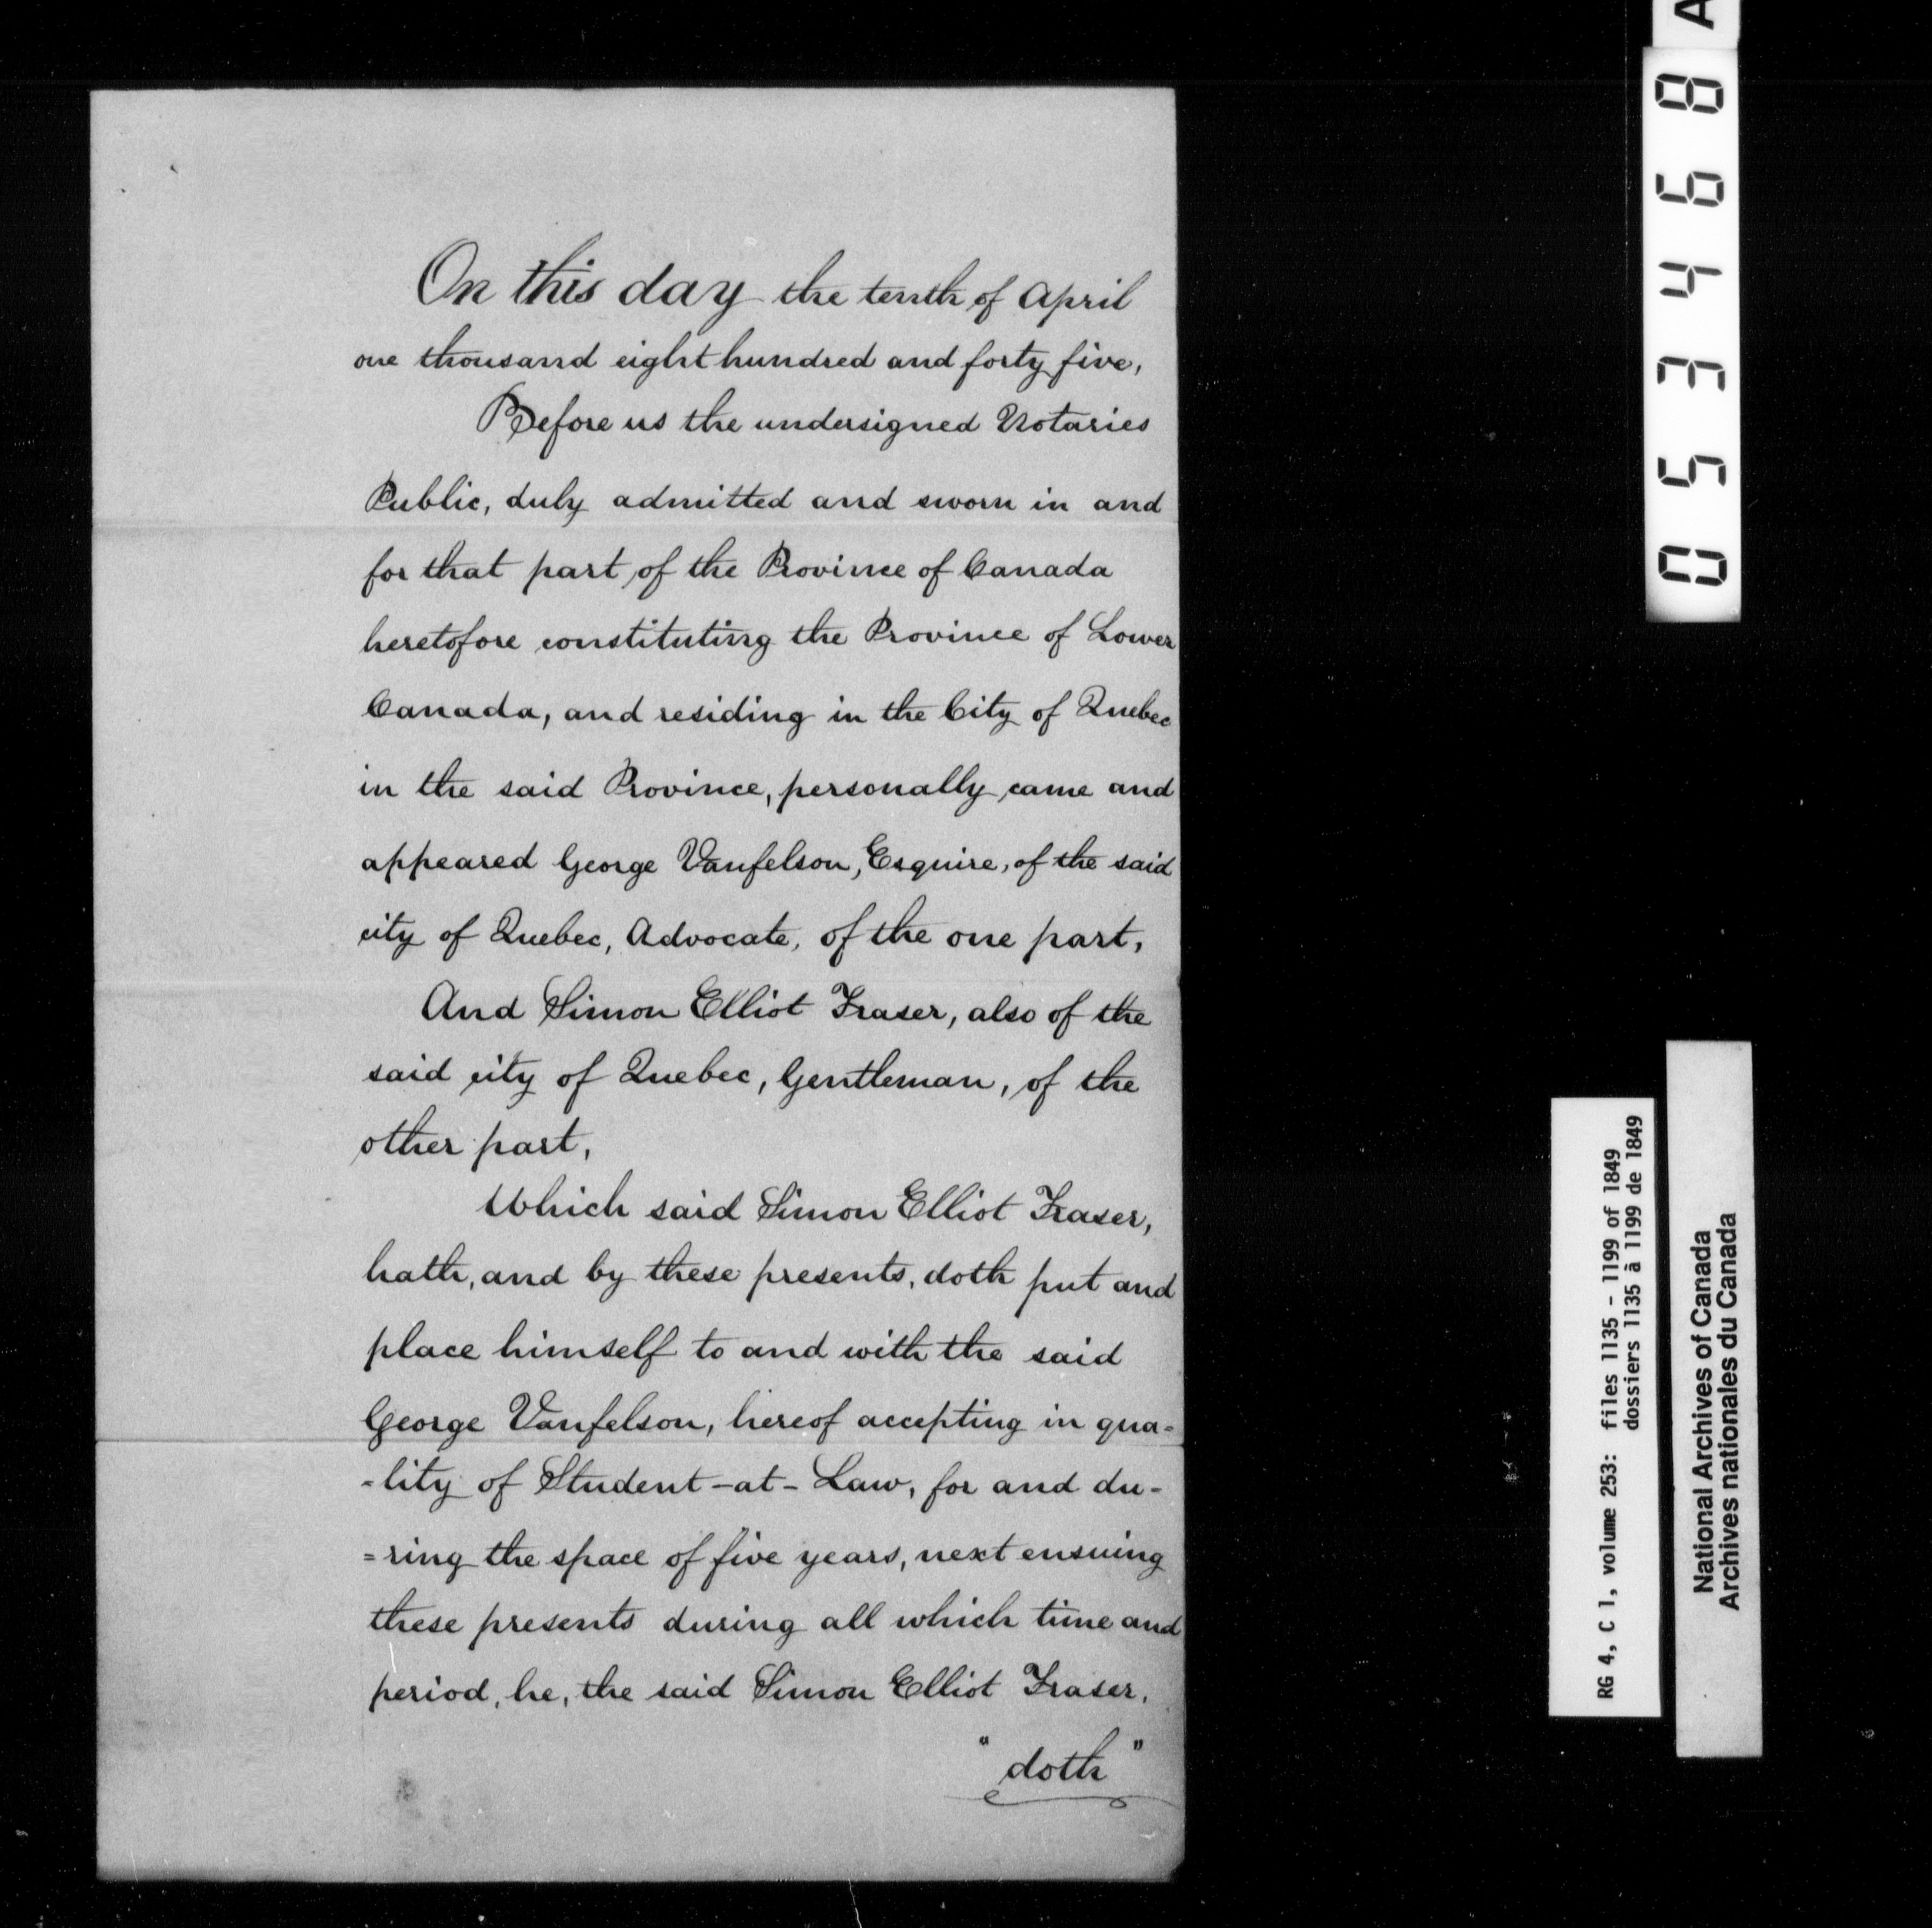 On this day the tenth of April
one thousand eight hundred and forty five,
Before us the undersigned Notaries
Public, duly admitted and sworn in and
for that part of the Province of Canada
heretofore constituting the Province of Lower
Canada, and residing in the City of Quebec
in the said Province, personally came and
appeared George Vanfelson, Esquire, of the said
city of Quebec, Advocate, of the one part,
And Simon Elliot Fraser, also of the
said city of Quebec, Gentleman, of the
other part,
Which said Simon Elliot Fraser,
hath, and by these presents, doth put and
place himself to and with the said
George Vanfelson, hereof accepting in qua=
-lity of Student-at-Law, for and du-
=ring the space of five years, next ensuing
these presents during all which time and
period, he, the said Simon Elliot Fraser,
"doth"
053468 A
RG 4, C 1, volume 253: files 1135 - 1199 of 1849
dossiers 1135 à 1199 de 1849
National Archives of Canada
Archives nationales du Canada